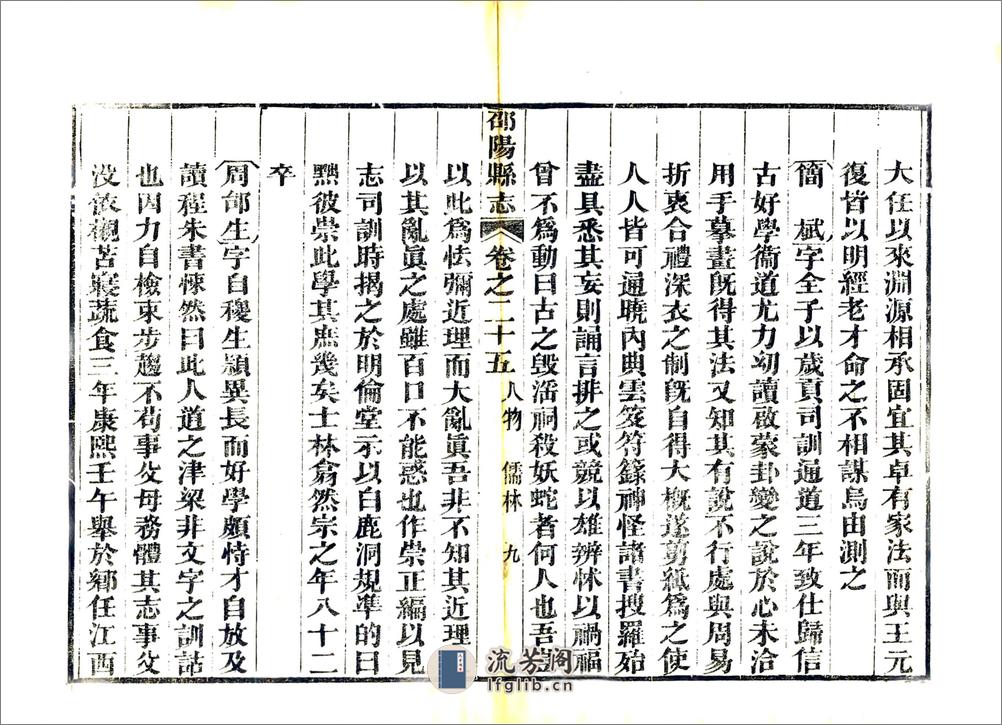 大任以來淵源相承固宜其卓有家法而與王元
復皆以明經老才命之不相謀烏由測之
簡　斌字全子以歲貢司訓通道三年致仕歸信
古好學衞道尤力初讀啟蒙卦變之說於心未洽
用手摹畫旣得其法又知其有說不行處與周易
折衷合禮深衣之制旣自得大概遂剪紙爲之使
人人皆可通曉內典雲笈符籙神怪諸書搜羅殆
盡具悉其妄則誦言排之或競以雄辨怵以禍福
曾不爲動曰古之毀淫祠殺妖蛇者何人也吾
邵陽縣志
卷之二十五
人物
儒林
九
以此爲怯彌近理而大亂眞吾非不知其近理
以其亂眞之處雖百口不能惑也作崇正編以見
志司訓時揭之於明倫堂示以白鹿洞規準的曰
黜彼崇此學其庶幾矣士林翕然宗之年八十二
卒
周郁生字自穫生頴異長而好學頗恃才自放及
讀程朱書悚然曰此人道之津梁非文字之訓詁
也因力自檢束步趨不苟事父母務體其志事父
沒浹襯苫寢蔬食三年康熙壬午舉於鄉任江西
流芳阁
lfglib.cn